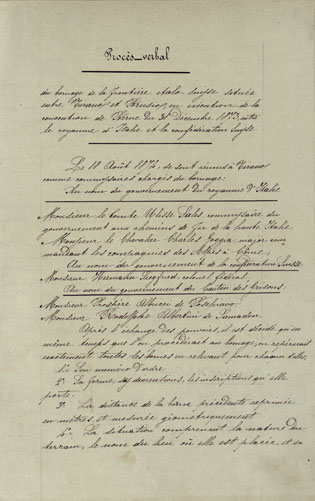 Procès-verbal
du bornage de la frontière italo suisse située
entre Tirano et Brusio, en exécution de la
convention de Berne du 31 Décembre 1873, entre
le royaume d'Italie et la confédération Suisse.
Le 18 Août 1874, se sont réunis à Tirano
comme commissaires chargés du bornage:
Au nom du gouvernement du royaume d'Italie
Monsieur le Comte Ulisse Salis commissaire du
gouvernement aux chemins de fer de la haute Italie.
Monsieur le Chevalier Charles major com
mandant les compagnies des Alpes à
Au nom du gouvernement de la confédération Suisse.
Monsieur Hermann Siegfried, colonel fédéral,
Au nom du gouvernement du Canton des Grisons:
Monsieur Prospère Albrici de Poschiavo
Monsieur Rodolphe Albertini de Samaden.
Après l'échange des pouvoirs, il est décidé qu'en
même temps que l'on procédait au bornage, on repérerait
exactement toutes les bornes en relevant pour chacune d'elles,
1° Son numéro d'ordre
2° Sa forme, ses dimensions, les inscriptions qu'elle
porte.
3° La distance de la borne précédente exprimée
en mètres et mesurée géométriquement
4° La situation comprenant la nature du
terrain, le nom du lieu où elle est placée et sa